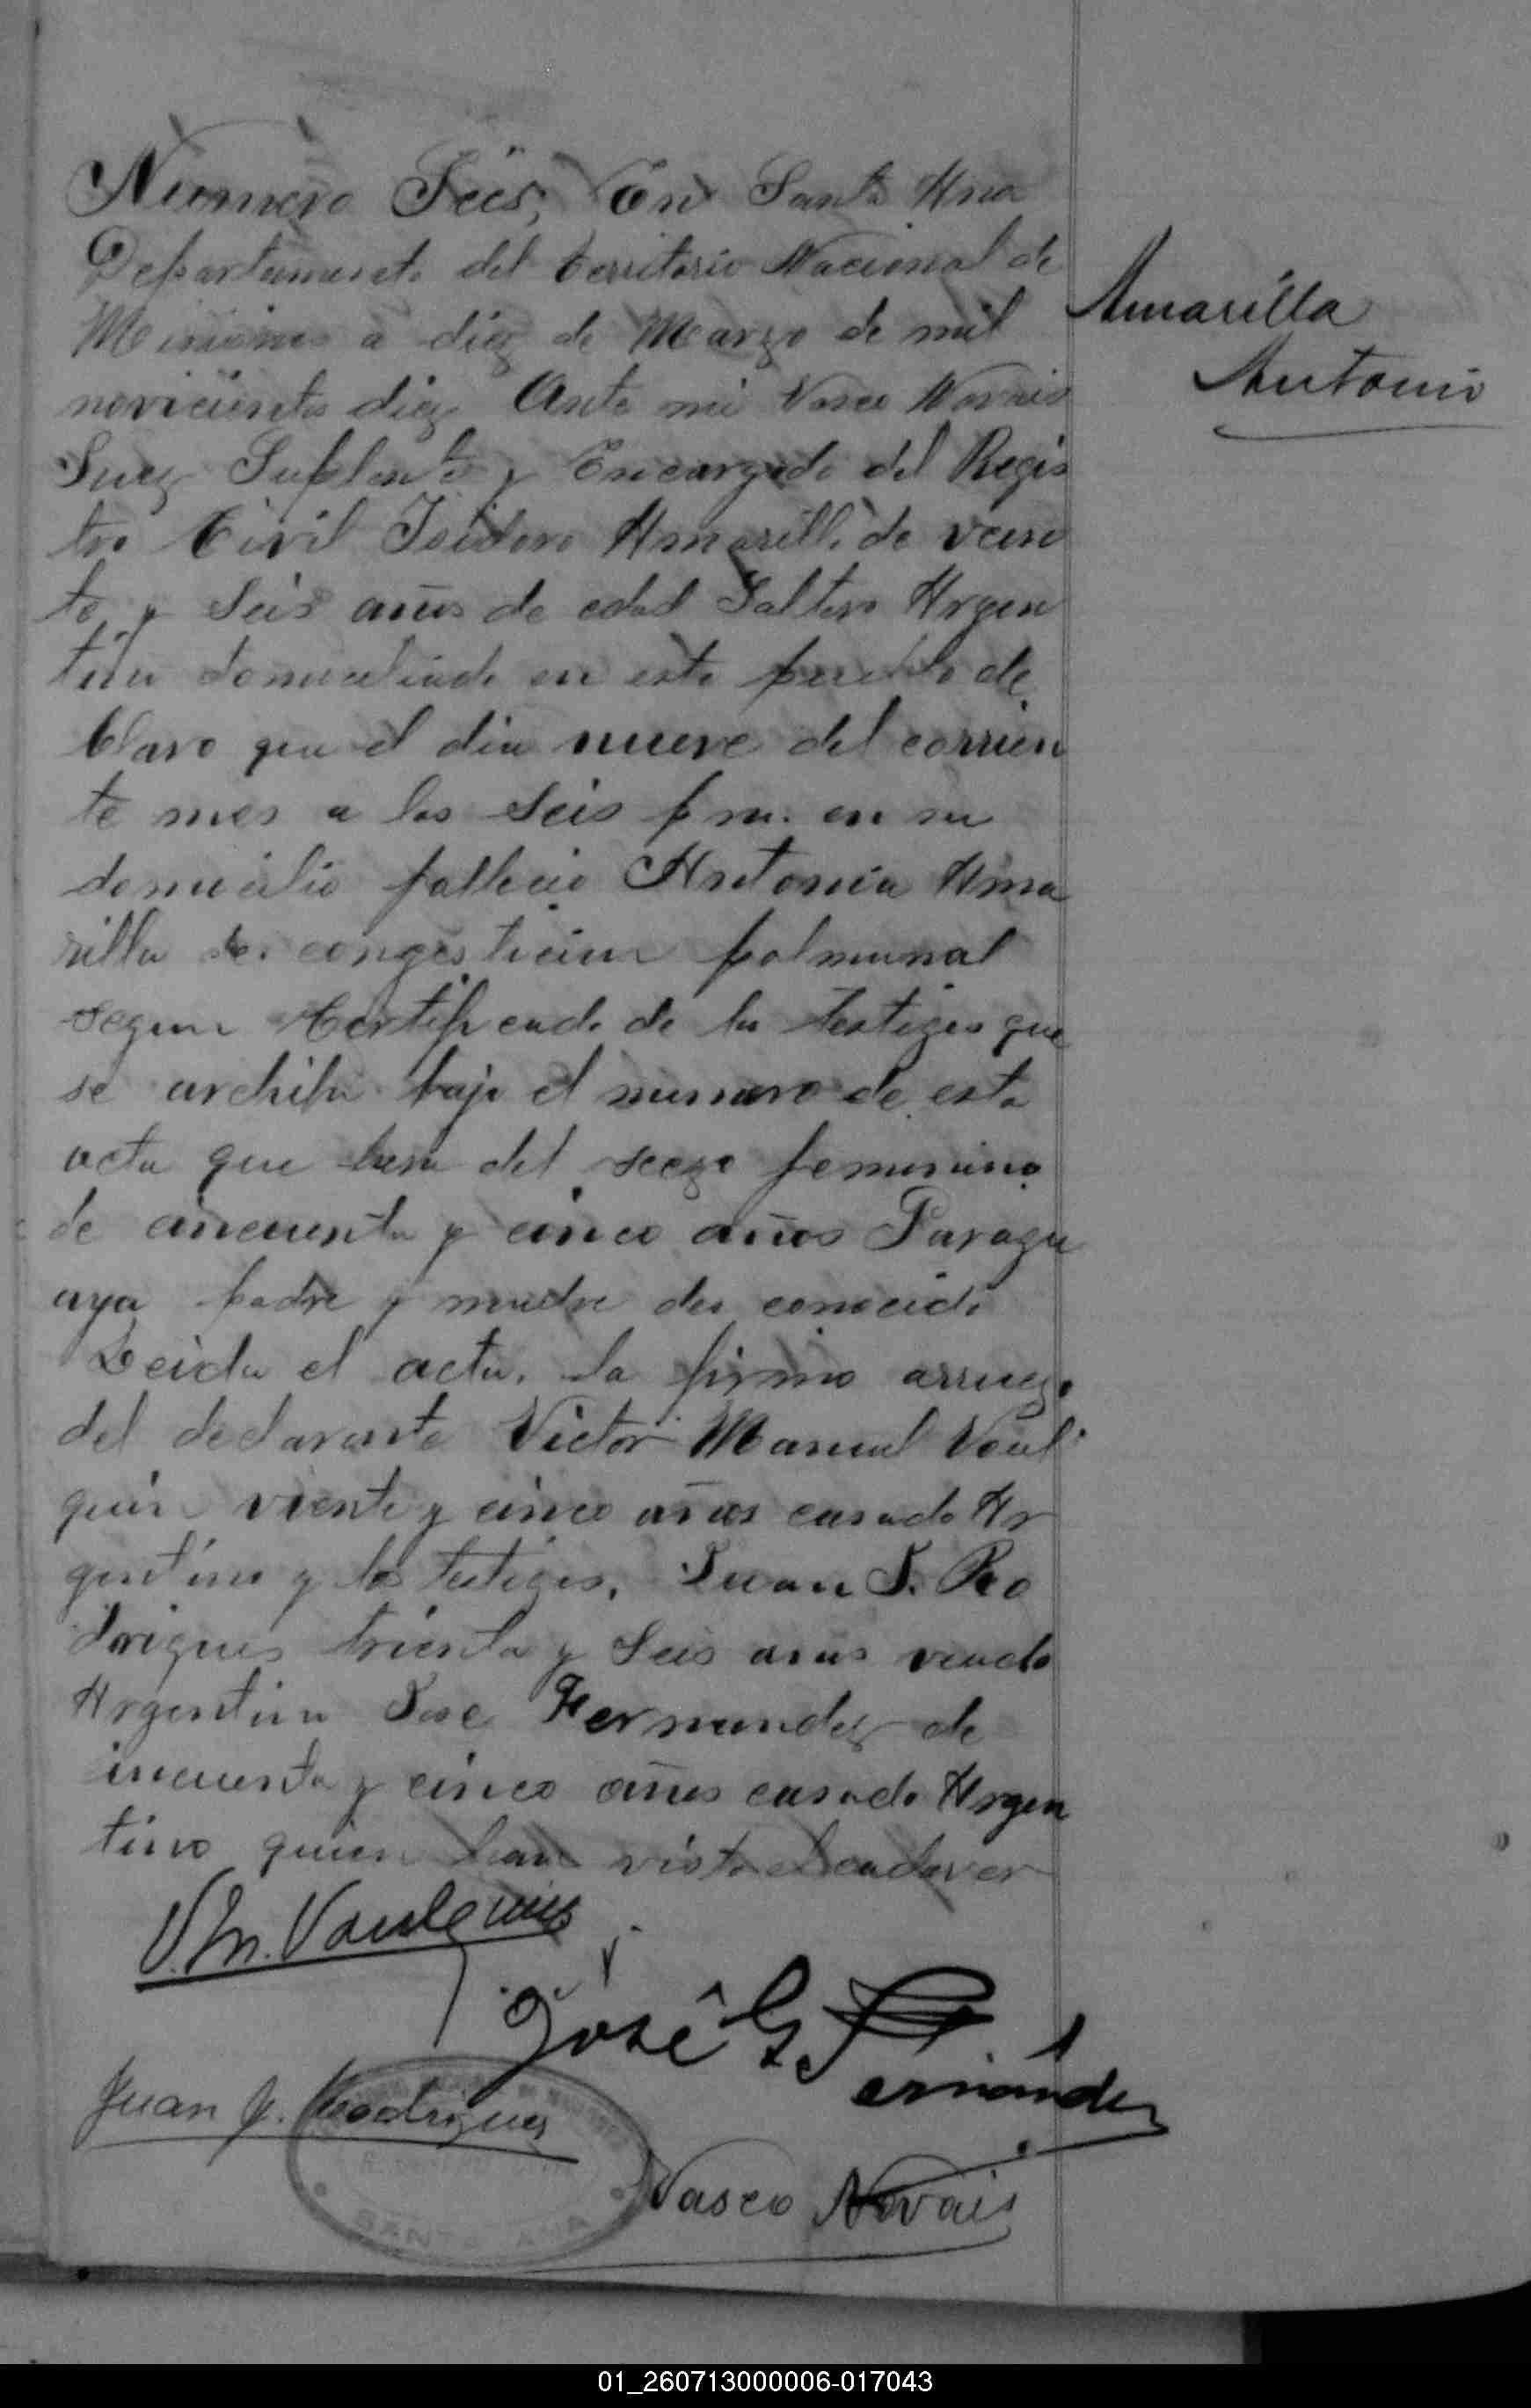 Número Séis, En Santa Ana
Departamento del territorio Nacional de
Misiones a diez de Marzo de mil
novicientos diez Ante mi Vasco Novais
Juez Suplente y Encargado del Regis
tro Civil Isidoro Amarilla de vein
te y Seis años de edad Saltero Argen
tino domiciliado en este pueblo de
Claro que el dia nueve del corrien
te mes a las Seis p m. en su
domicilio fallecio Antonia Ama
rilla de congestion polmunal
segun Certificado de los testigos que
se archiba bajo el numero de esta
acta que hera del seczo feminino
de cincuenta y cinco años Paragu
aya padre y madre des conocido
Leida el acta. la firmo arruego
del declarante Victor Manuel Voul
quin viente y cinco años casado Ar
gentino y los testigos. Juan J. Ro
drigues trienta y Seis anus viudo
Argentino Jose Fernandez de
incuenta y cinco años casado Argen
tino quien han visto el cadaver
Amarilla
Antonio
V. M. Vaulquin
José G. Fernandez
Juan J. Rodriguez
Vasco Novais
01_260713000006-017043